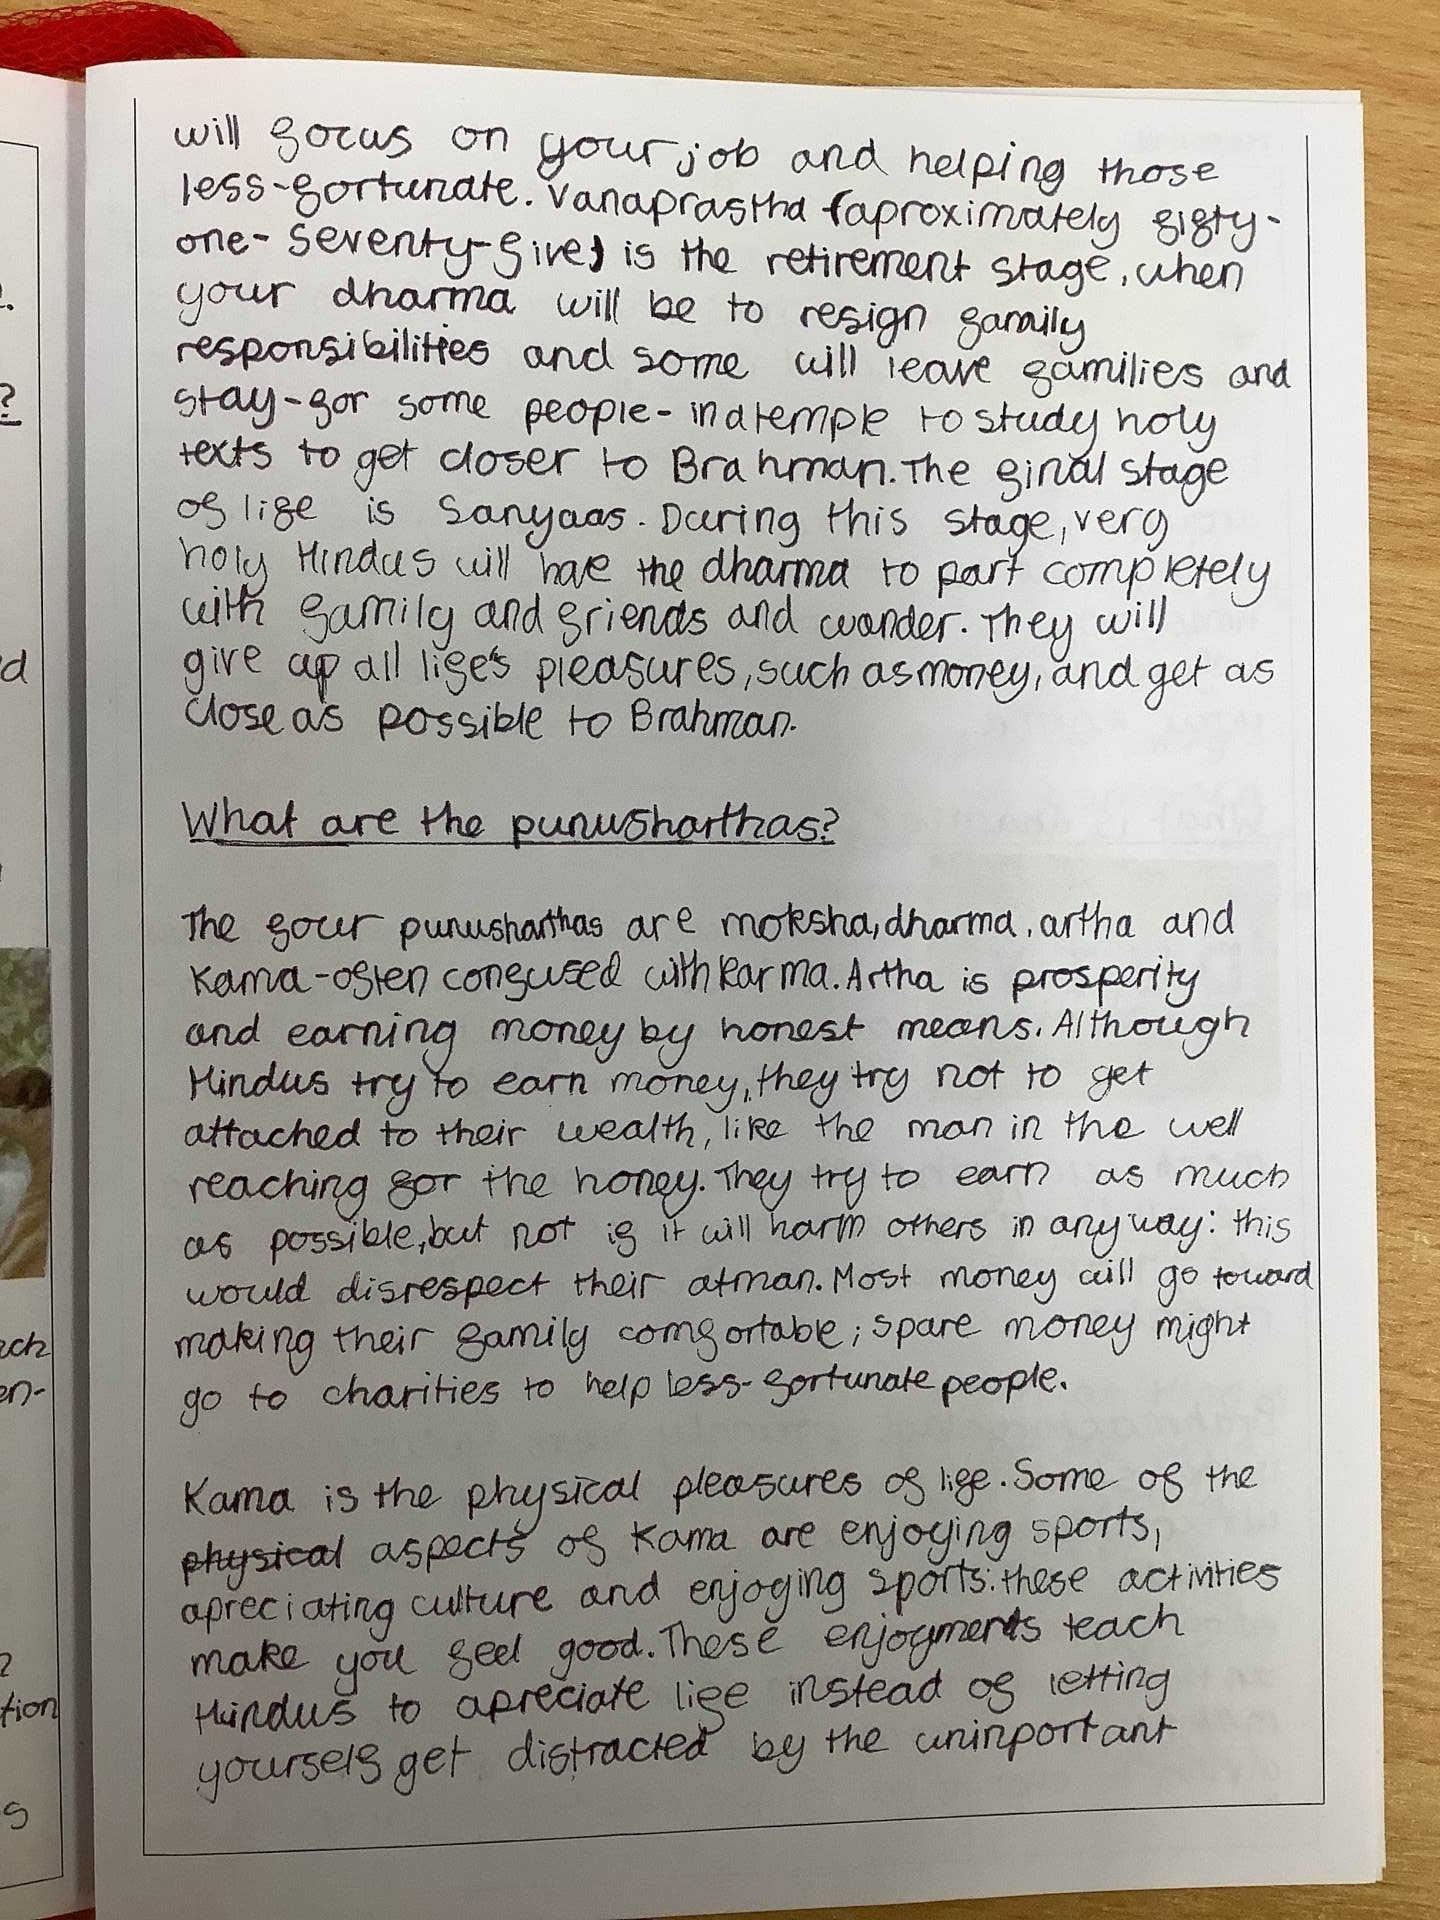 will focus on your job and helping those
less-fortunate. Vanaprastha (aproximately fifty-
one-seventy-five) is the retirement stage, when
your dharma will be to resign family
responsibilities and some will leave families and
stay-for some people-in a temple to study holy
texts to get closer to Brahman. The final stage
of life is Sanyaas. During this stage, very
holy Hindus will have the dharma to part completely
with family and friends and wander. They will
give up all life's pleasures, such as money, and get as
close as possible to Brahman.
What are the punusharthas?
The four punusharthas are moksha, dharma, artha and
Kama-often confused with karma. Artha is prosperity
and earning money by honest means. Although
Hindus try to earn money, they try not to get
attached to their wealth, like the man in the well
reaching for the honey. They try to earn as much
as possible, but not if it will harm others in any way: this
would disrespect their atman. Most money will go toward
making their family comfortable; spare money might
go to charities to help less-fortunate people.
Kama is the physical pleasures of life. Some of the
physical aspects of Kama are enjoying sports,
apreciating culture and enjoying sports: these activities
make you feel good. These enjoyments teach
Hindus to apreciate life instead of letting
yourself get distracted by the uninportant